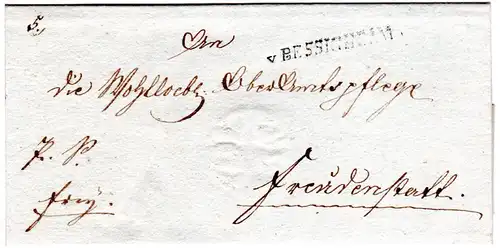 5.
An
v BESSIGHEIM.
die Wohllöbl. OberAmtspflege
P. S.
frey.
Freudenstatt.